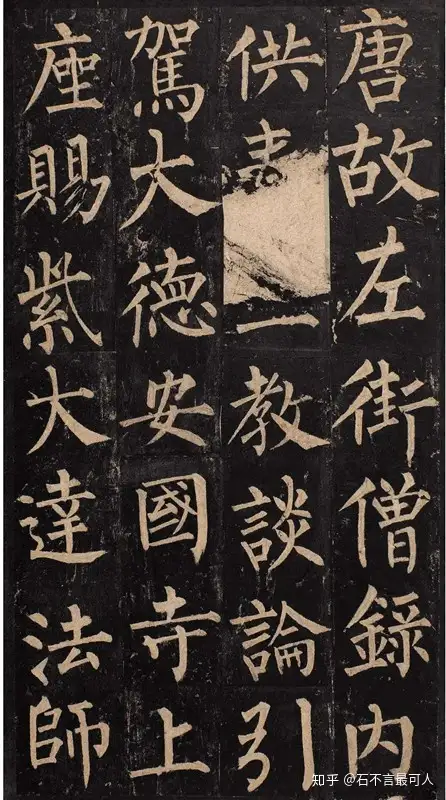 唐故左街僧錄内
供教談論引
駕大德安國寺上
座賜紫大達法師
知乎 @石不言最可人